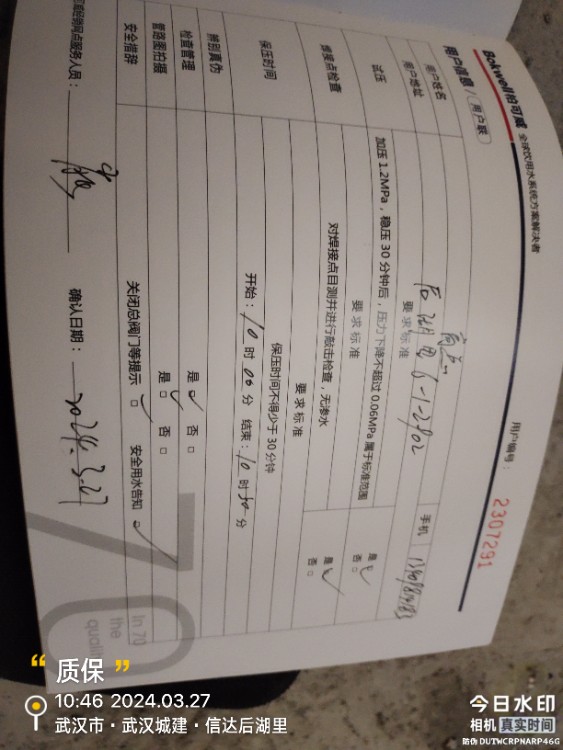 Bokwell柏可威 全球饮用水系统方案解决者
用户编号： 2307291
用户信息/用户联
用户姓名
手机
用户地址
6-1-2902
试压
要求标准
加压1.2MPa，稳压30分钟后，压力下降不超过0.06MPa属于标准范围
是 ✓
否 □
焊接点检查
要求标准
对焊接点目测并进行敲击检查，无渗水
是 ✓
否 □
保压时间
要求标准
保压时间不得少于30分钟
开始：10时06分 结束：10时50分
辨别真伪
是 ✓ 否 □
检查管理
是 ✓ 否 □
管路图拍摄
安全措辞
关闭总阀门等提示 □ ✓ 安全用水告知 ✓
服务人员：
确认日期： 2024.3.27
In 70
the
quali
“ 质保 ”
10:46 2024.03.27
武汉市·武汉城建·信达后湖里
今日水印
相机 真实时间
防伪 DUTWCRPNARP46G